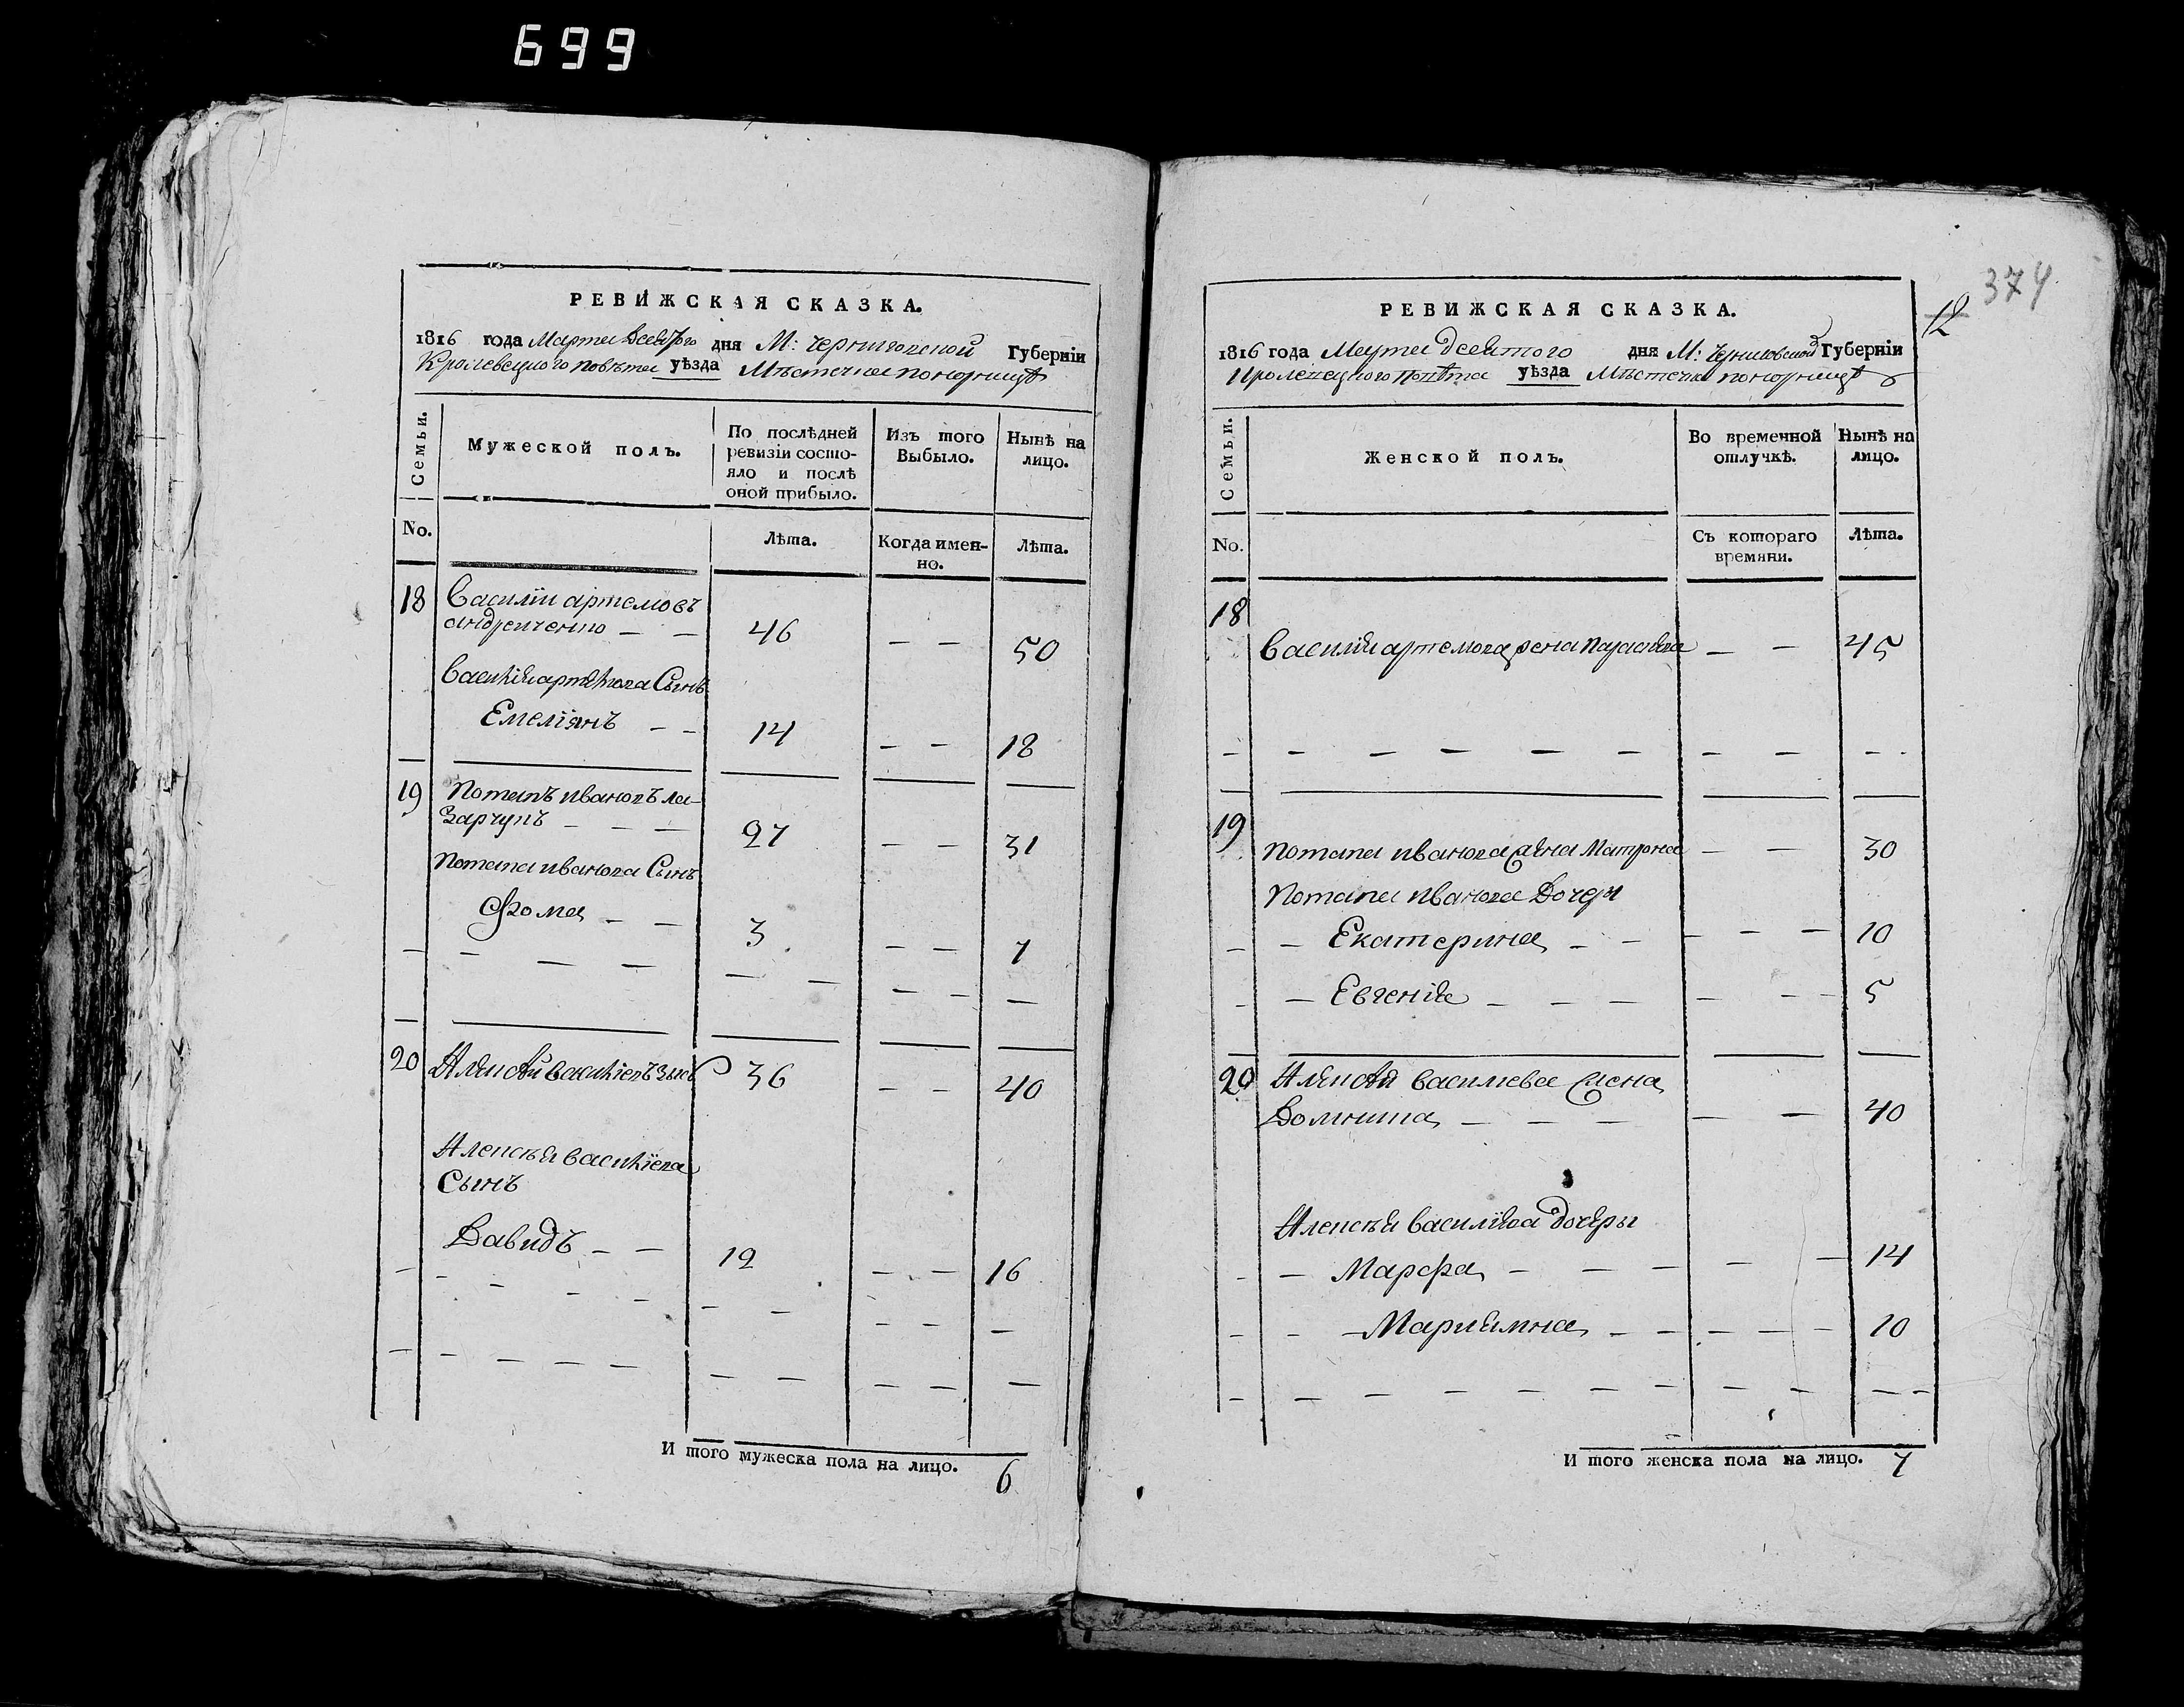 699
РЕВИЖСКАЯ СКАЗКА.
1816 года Марта дня М: Черниговской Губерніи
Кролевецкого повѣта уѣзда Мѣстечка понорницѣ
Семьи.
Мужеской полъ.
По послѣдней ревизіи состо-
яло и послѣ
оной прибыло.
Изъ того
Выбыло.
Нынѣ на
лицо.
No.
Лѣта.
Когда имен-
но.
Лѣта.
18 Василіи артемовъ
андрейченко — — 46 — — 50
Василія артемова Сынъ
Емеліянъ — — 14 — — 18
19 Потапъ ивановъ ла-
зарчукъ — — — 27 — — 31
Потапа иванова Сынъ
Фома — — 3 — — 7
20 Алексѣй василіевъ 36 — — 40
Алексѣя василіева
Сынъ
Давидъ — — 12 — — 16
И того мужеска пола на лицо. 6
374
12
РЕВИЖСКАЯ СКАЗКА.
1816 года Марта десятого дня М: Черниговской Губерніи
Кролевецкого повѣта уѣзда Мѣстечка понорницѣ
Семьи.
Женской полъ.
Во временной
отлучкѣ.
Нынѣ на
лицо.
No.
Съ котораго
времяни.
Лѣта.
18
Василія артемова жена параскева — — 45
19
Потапа иванова жена Матрона — — 30
Потапа иванова дочери
— — Екатерина — — — — — 10
— — Евгенія — — — — — — 5
20 Алексѣя василиева жена
Домникия — — — — — 40
Алексѣя василіева дочеры
— — Марфа — — — — — 14
— — Мариямна — — — — — 10
И того женска пола на лицо. 7